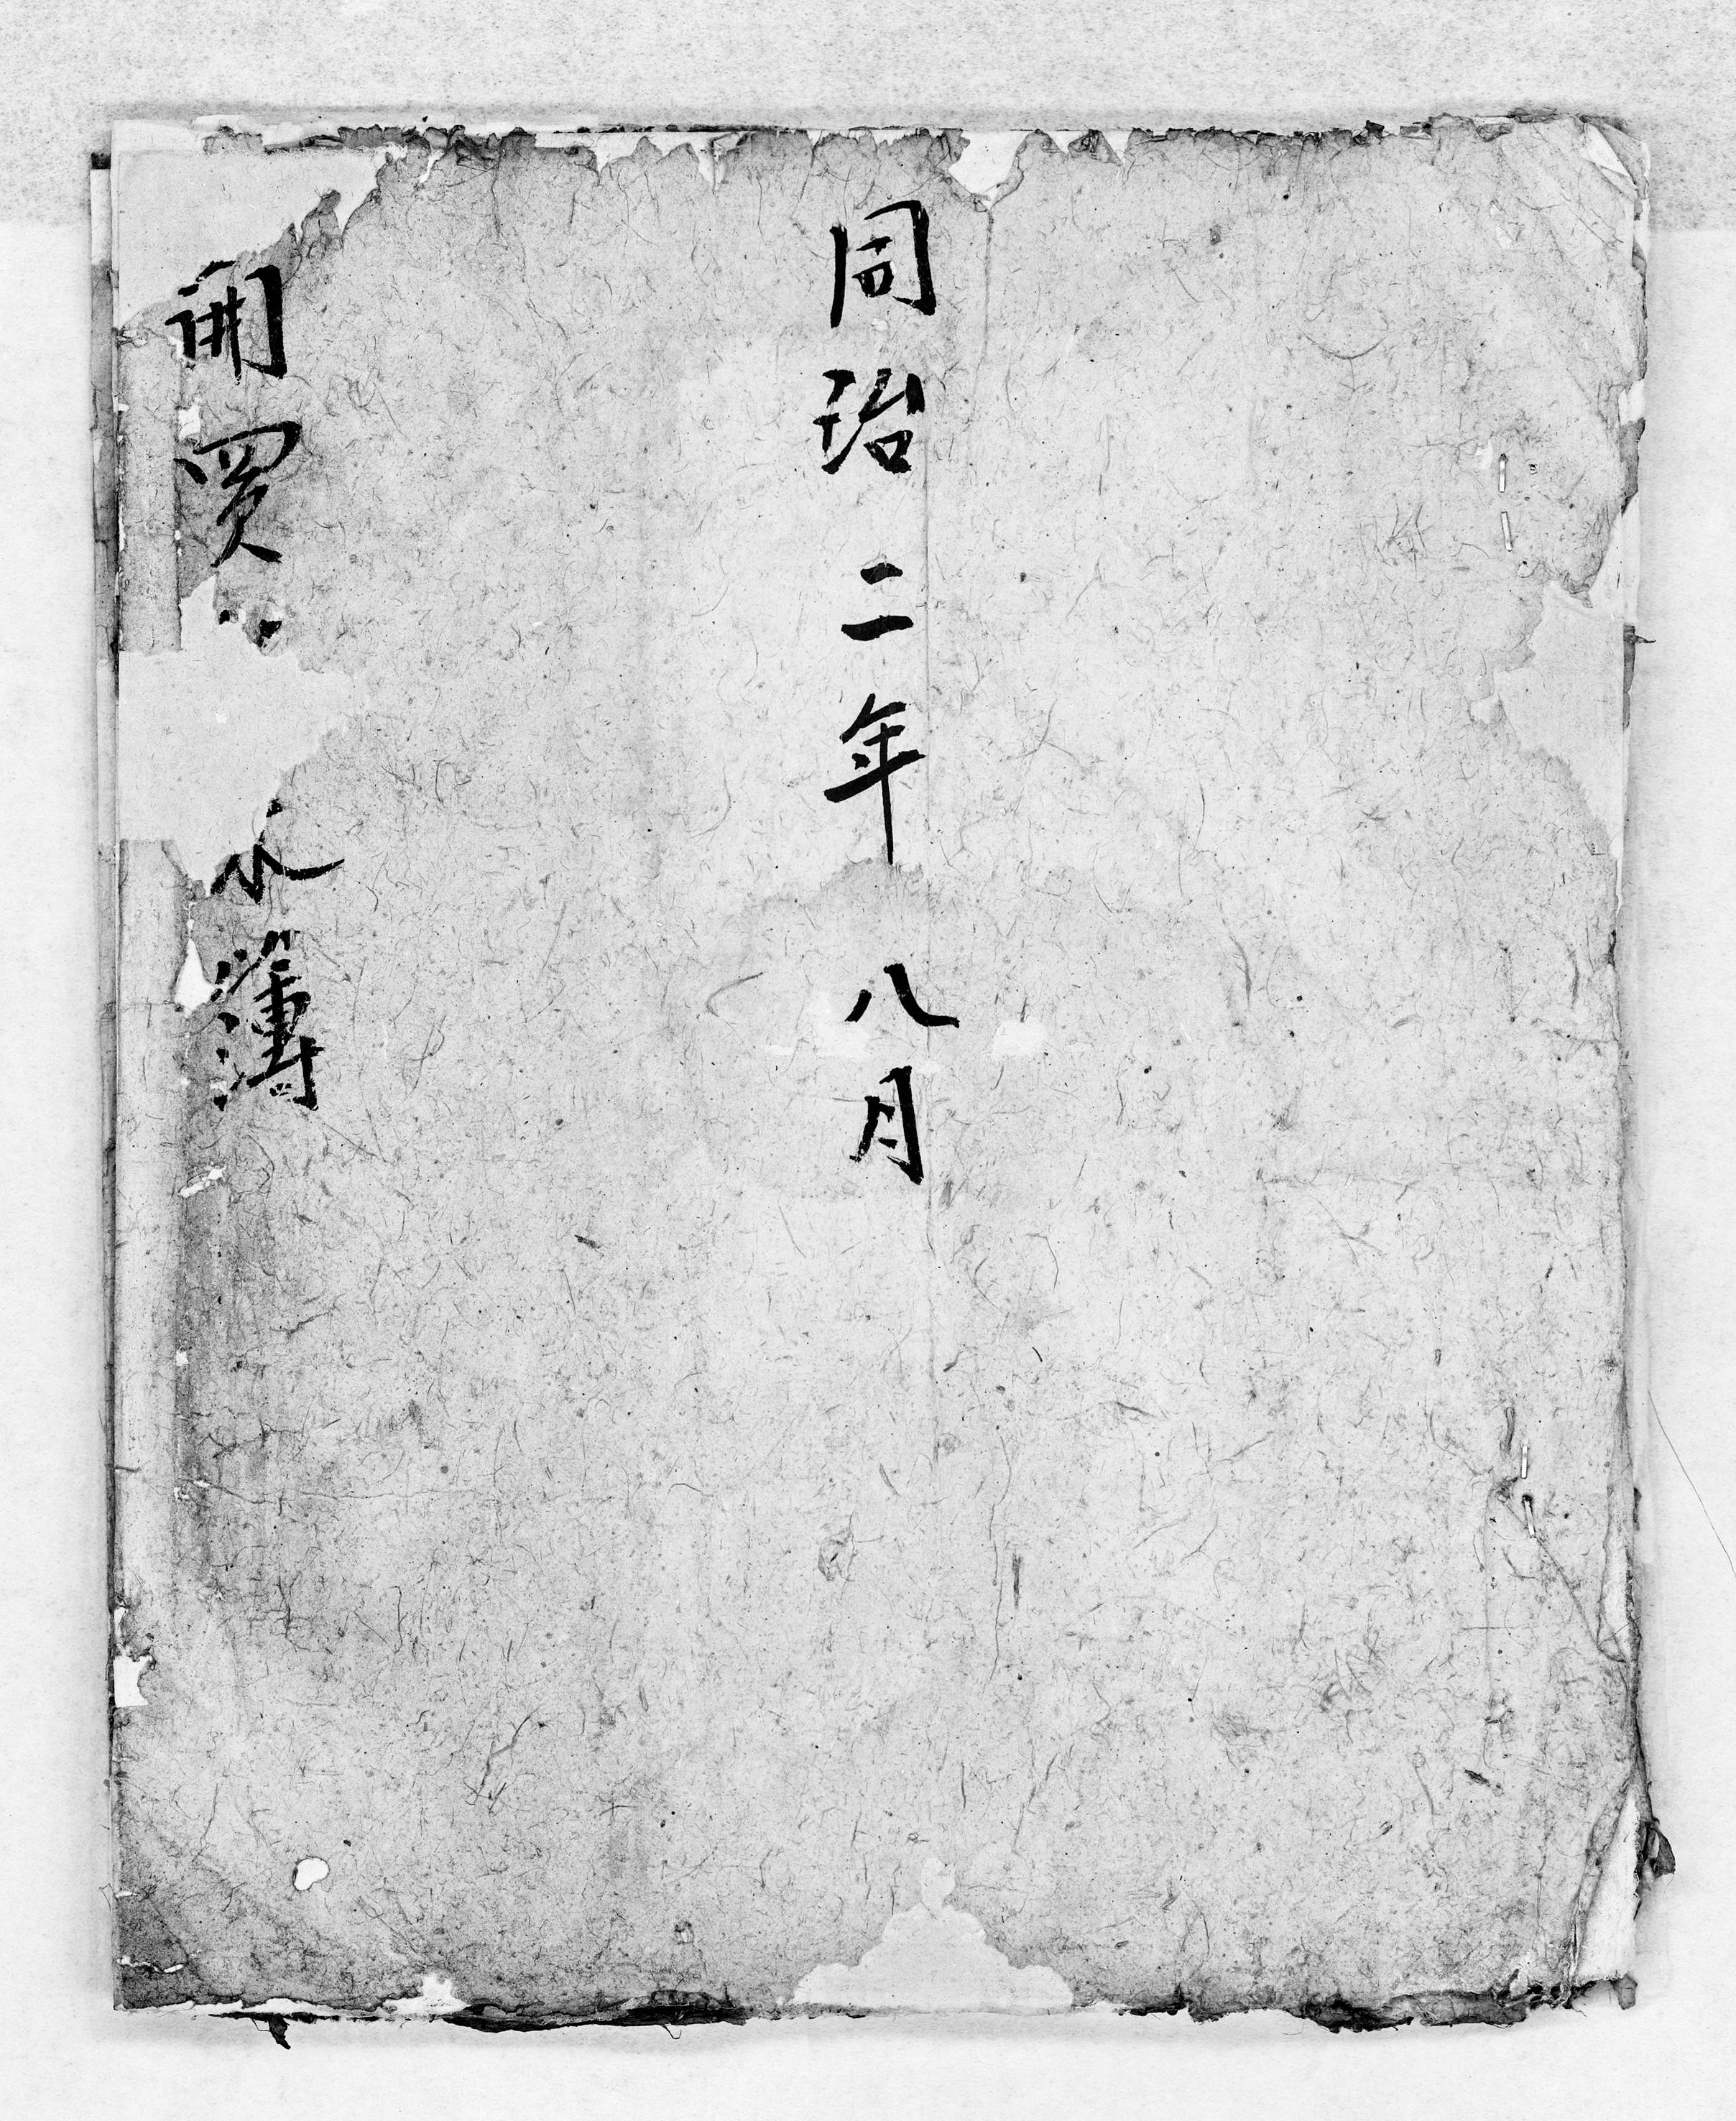 同治二年八月
開買
簿